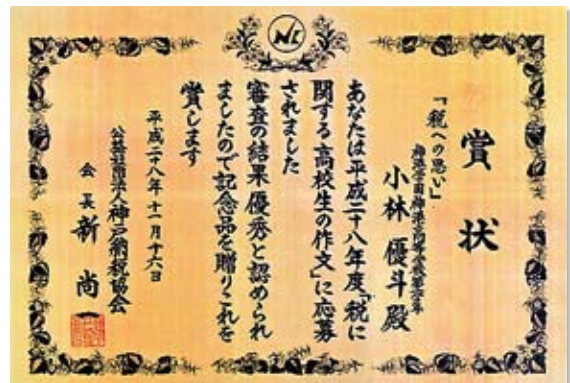 賞状
「税への思い」
小林優斗殿
あなたは平成二十八年度「税に
関する高校生の作文」に応募
されました
審査の結果優秀と認められ
ましたので記念品を贈りこれを
賞します
平成二十八年十一月十六日
公益社団法人神戸納税協会
会長新尚一